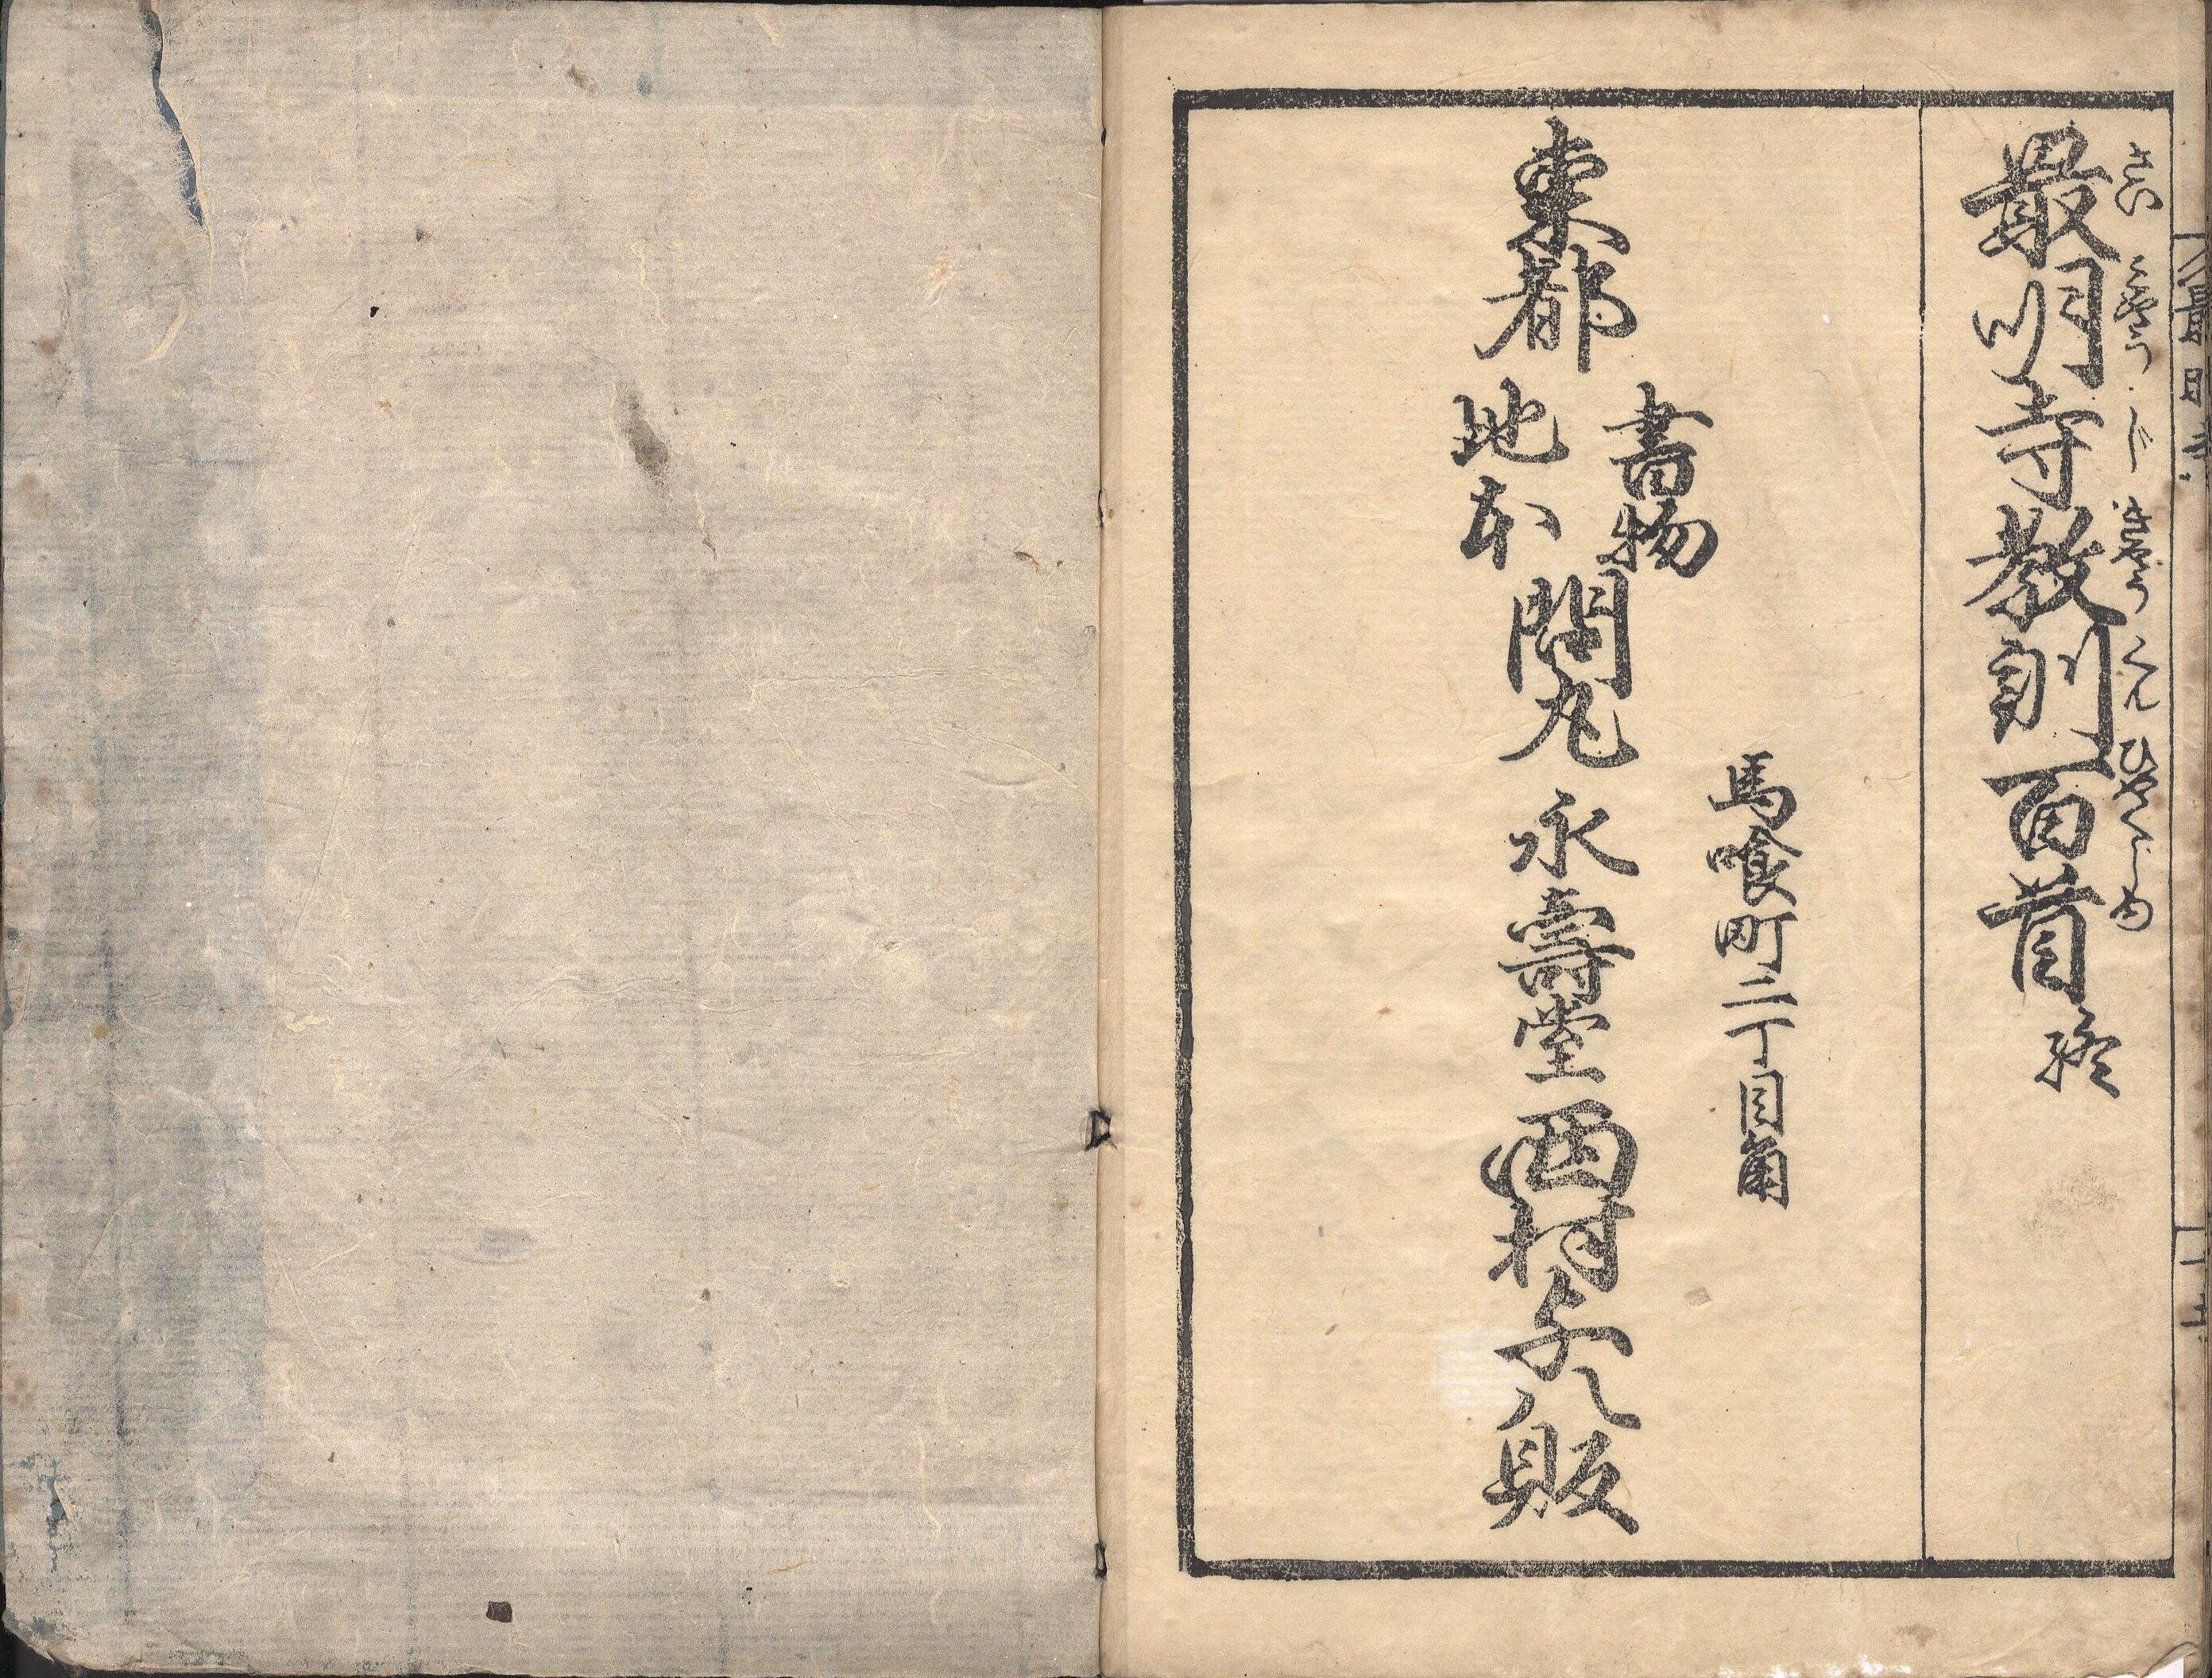 さいみやうじきやうくんひやくしゆ
最明寺教訓百首終
馬喰町二丁目角
東都
書物
地本
問丸 永壽堂 西村与八販